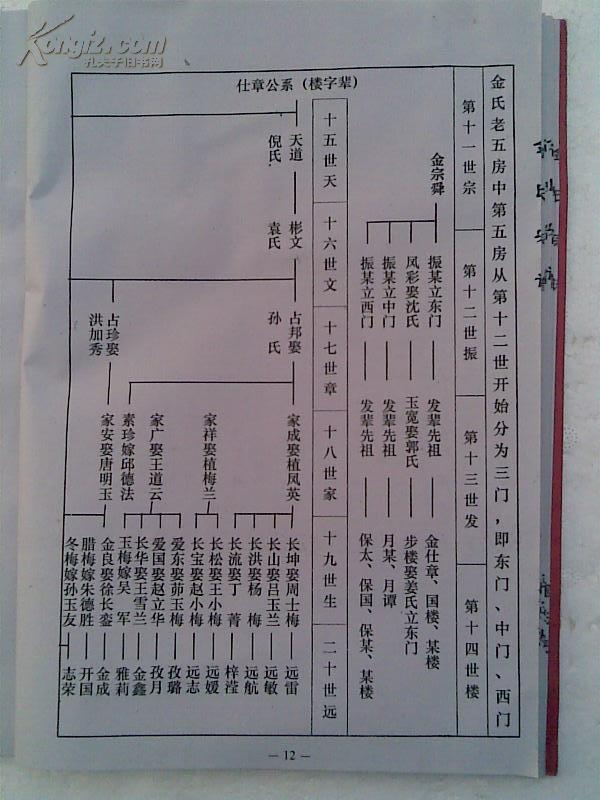 Kongfz.com
孔夫子旧书网
金氏老五房中第五房从第十二世开始分为三门，即东门、中门、西门
第十一世宗
第十二世振
第十三世发
第十四世楼
金宗舜
振某立东门
凤彩娶沈氏
振某立中门
振某立西门
发辈先祖
玉宽娶郭氏
发辈先祖
发辈先祖
金仕章、国楼、某楼
步楼娶姜氏立东门
月某、月谭
保太、保国、保某、某楼
仕章公系（楼字辈）
十五世天
十六世文
十七世章
十八世家
十九世生
二十世远
天道
倪氏
彬文
袁氏
占邦娶
孙氏
占珍娶
洪加秀
家成娶植凤英
家祥娶植梅兰
家广娶王道云
素珍嫁邱德法
家安娶唐明玉
长坤娶周士梅
长山娶吕玉兰
长洪娶杨梅
长流娶丁菁
长松娶王小梅
长宝娶赵小梅
爱东娶茆玉梅
爱国娶赵立华
长华娶王雪兰
玉梅嫁吴军
金良娶徐长銮
腊梅嫁朱德胜
冬梅嫁孙玉友
远雷
远敏
远航
梓滢
远媛
远志
孜璐
孜月
金鑫
雅莉
金成
开国
志荣
— 12 —